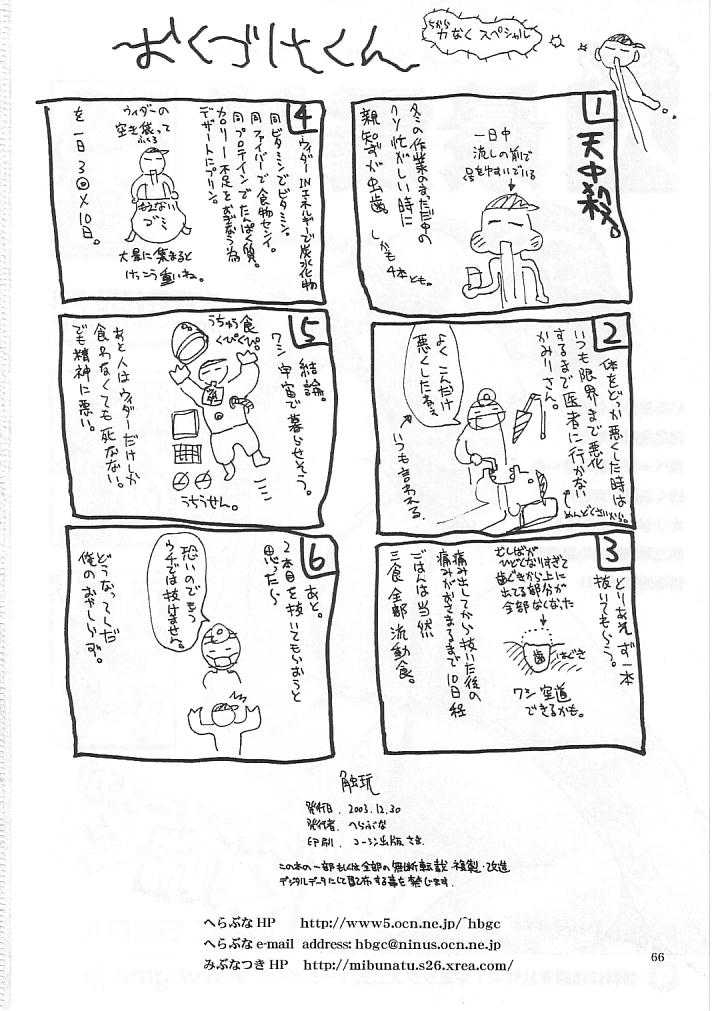 おくづけくん
ちから
力なくスペシャル
1
天中殺。
一日中
流しの前で
冬の作業のまっただ中の
クソ忙がしい時に
親知ずが虫歯。
しかも4本とも。
2
体をどっか悪くした時は
いつも限界まで悪化
するまで医者に行かない
かみりさん。
めんどくさいから。
よくこんだけ
悪くしたねぇ
いつも言われる
3
とりあえず一本
抜いてもらう。
ひどくなりすぎて
歯ぐきから上に
出てる部分が
全部なくなった
歯
はぐき
ワシ空道
できるかも。
痛み出してから抜いた後の
痛みがおさまるまで10日経
ごはんは当然
三食全部流動食。
4
ウィダーINエネルギーで炭水化物
同ビタミンでビタミン。
同ファイバーで食物センイ。
同プロテインでたんぱく質。
カロリー不足をおぎなう為
デザートにプリン。
ウィダーの
空き袋って
もえない
ゴミ
大量に集まると
けっこう重いね。
を一日3回×10日。
5
結論。
ワシ宇宙で暮らせそう。
うちゅう食
くぴくぴ。
うちうせん。
あと人はウィダーだけしか
食わなくても死なない。
でも精神に悪い。
6
あと。
2本目を抜いてもらおうと
思ったら
恐いのでもう
ウチでは抜けません。
どうなってんだ
俺のおやしらず。
触玩
発行日. 2003.12.30
発行者. へらぶな
印刷. コーシン出版さま
この本の一部もしくは全部の無断転載・複製・改造
デジタルデータにして配布する事を禁じます.
へらぶなHP http://www5.ocn.ne.jp/~hbgc
へらぶなe-mail address: hbgc@ninus.ocn.ne.jp
みぶなつきHP http://mibunatu.s26.xrea.com/
66